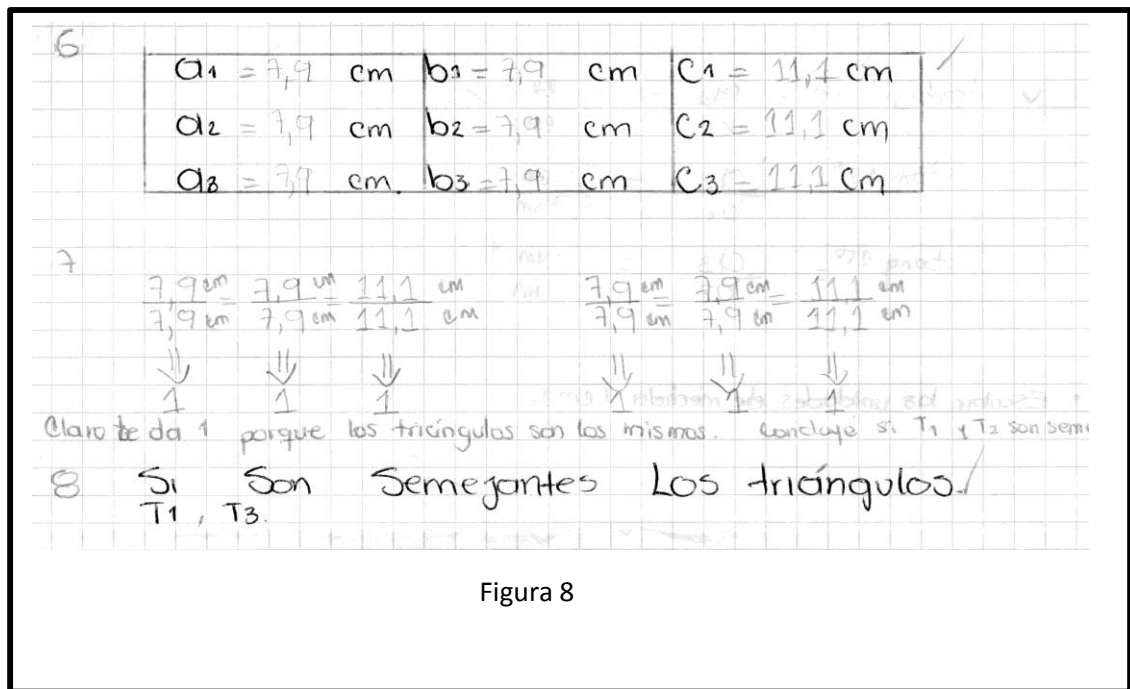 6
a1 = 7,9 cm b1 = 7,9 cm C1 = 11,1 cm
a2 = 7,9 cm b2 = 7,9 cm C2 = 11,1 cm
a3 = 7,9 cm. b3 = 7,9 cm C3 = 11,1 cm
7
7,9 cm = 7,9 cm = 11,1 cm 7,9 cm = 7,9 cm = 11,1 cm
7,9 cm 7,9 cm 11,1 cm 7,9 cm 7,9 cm 11,1 cm
⇓ ⇓ ⇓ ⇓ ⇓ ⇓
1 1 1 1 1 1
Claro te da 1 porque los triángulos son los mismos. concluye si T1 y T2 son sem
8 Si Son Semejantes Los triángulos.
T1, T3.
Figura 8